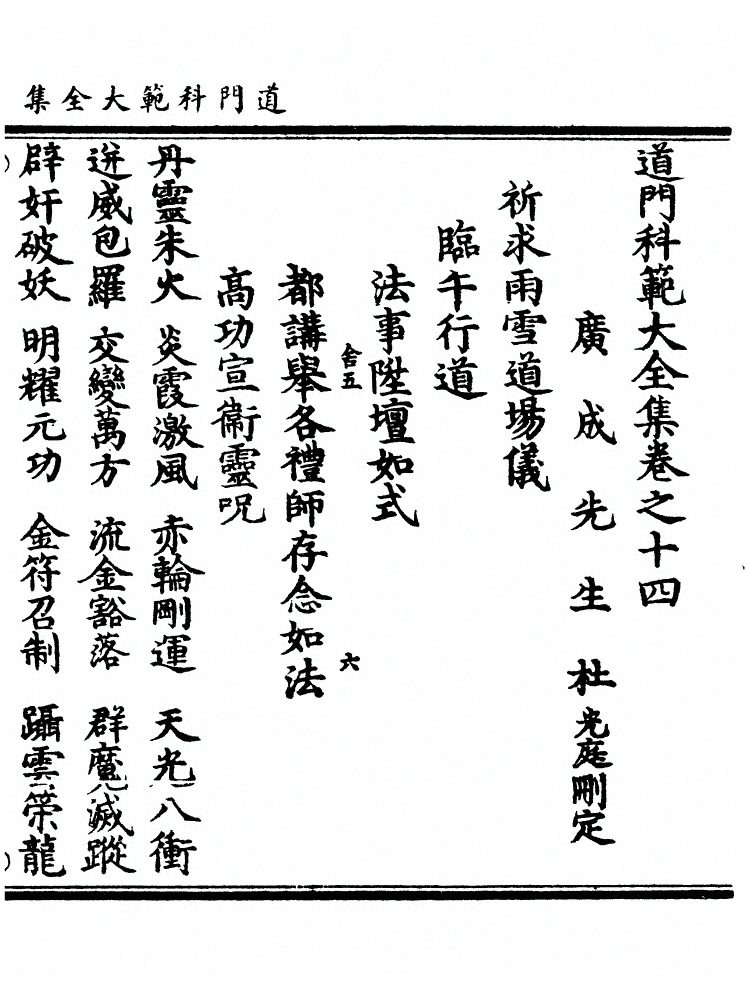 道門科範大全集
道門科範大全集卷之十四
廣成先生杜光庭刪定
祈求雨雪道場儀
臨午行道
法事陞壇如式
舍五
六
都講舉各禮師存念如法
高功宣衛靈呪
丹靈朱火 炎霞激風 赤輪剛運 天光八衝
迸威包羅 交變萬方 流金豁落 群魔滅蹤
辟奸破妖 明耀元功 金符召制 躡雲策龍